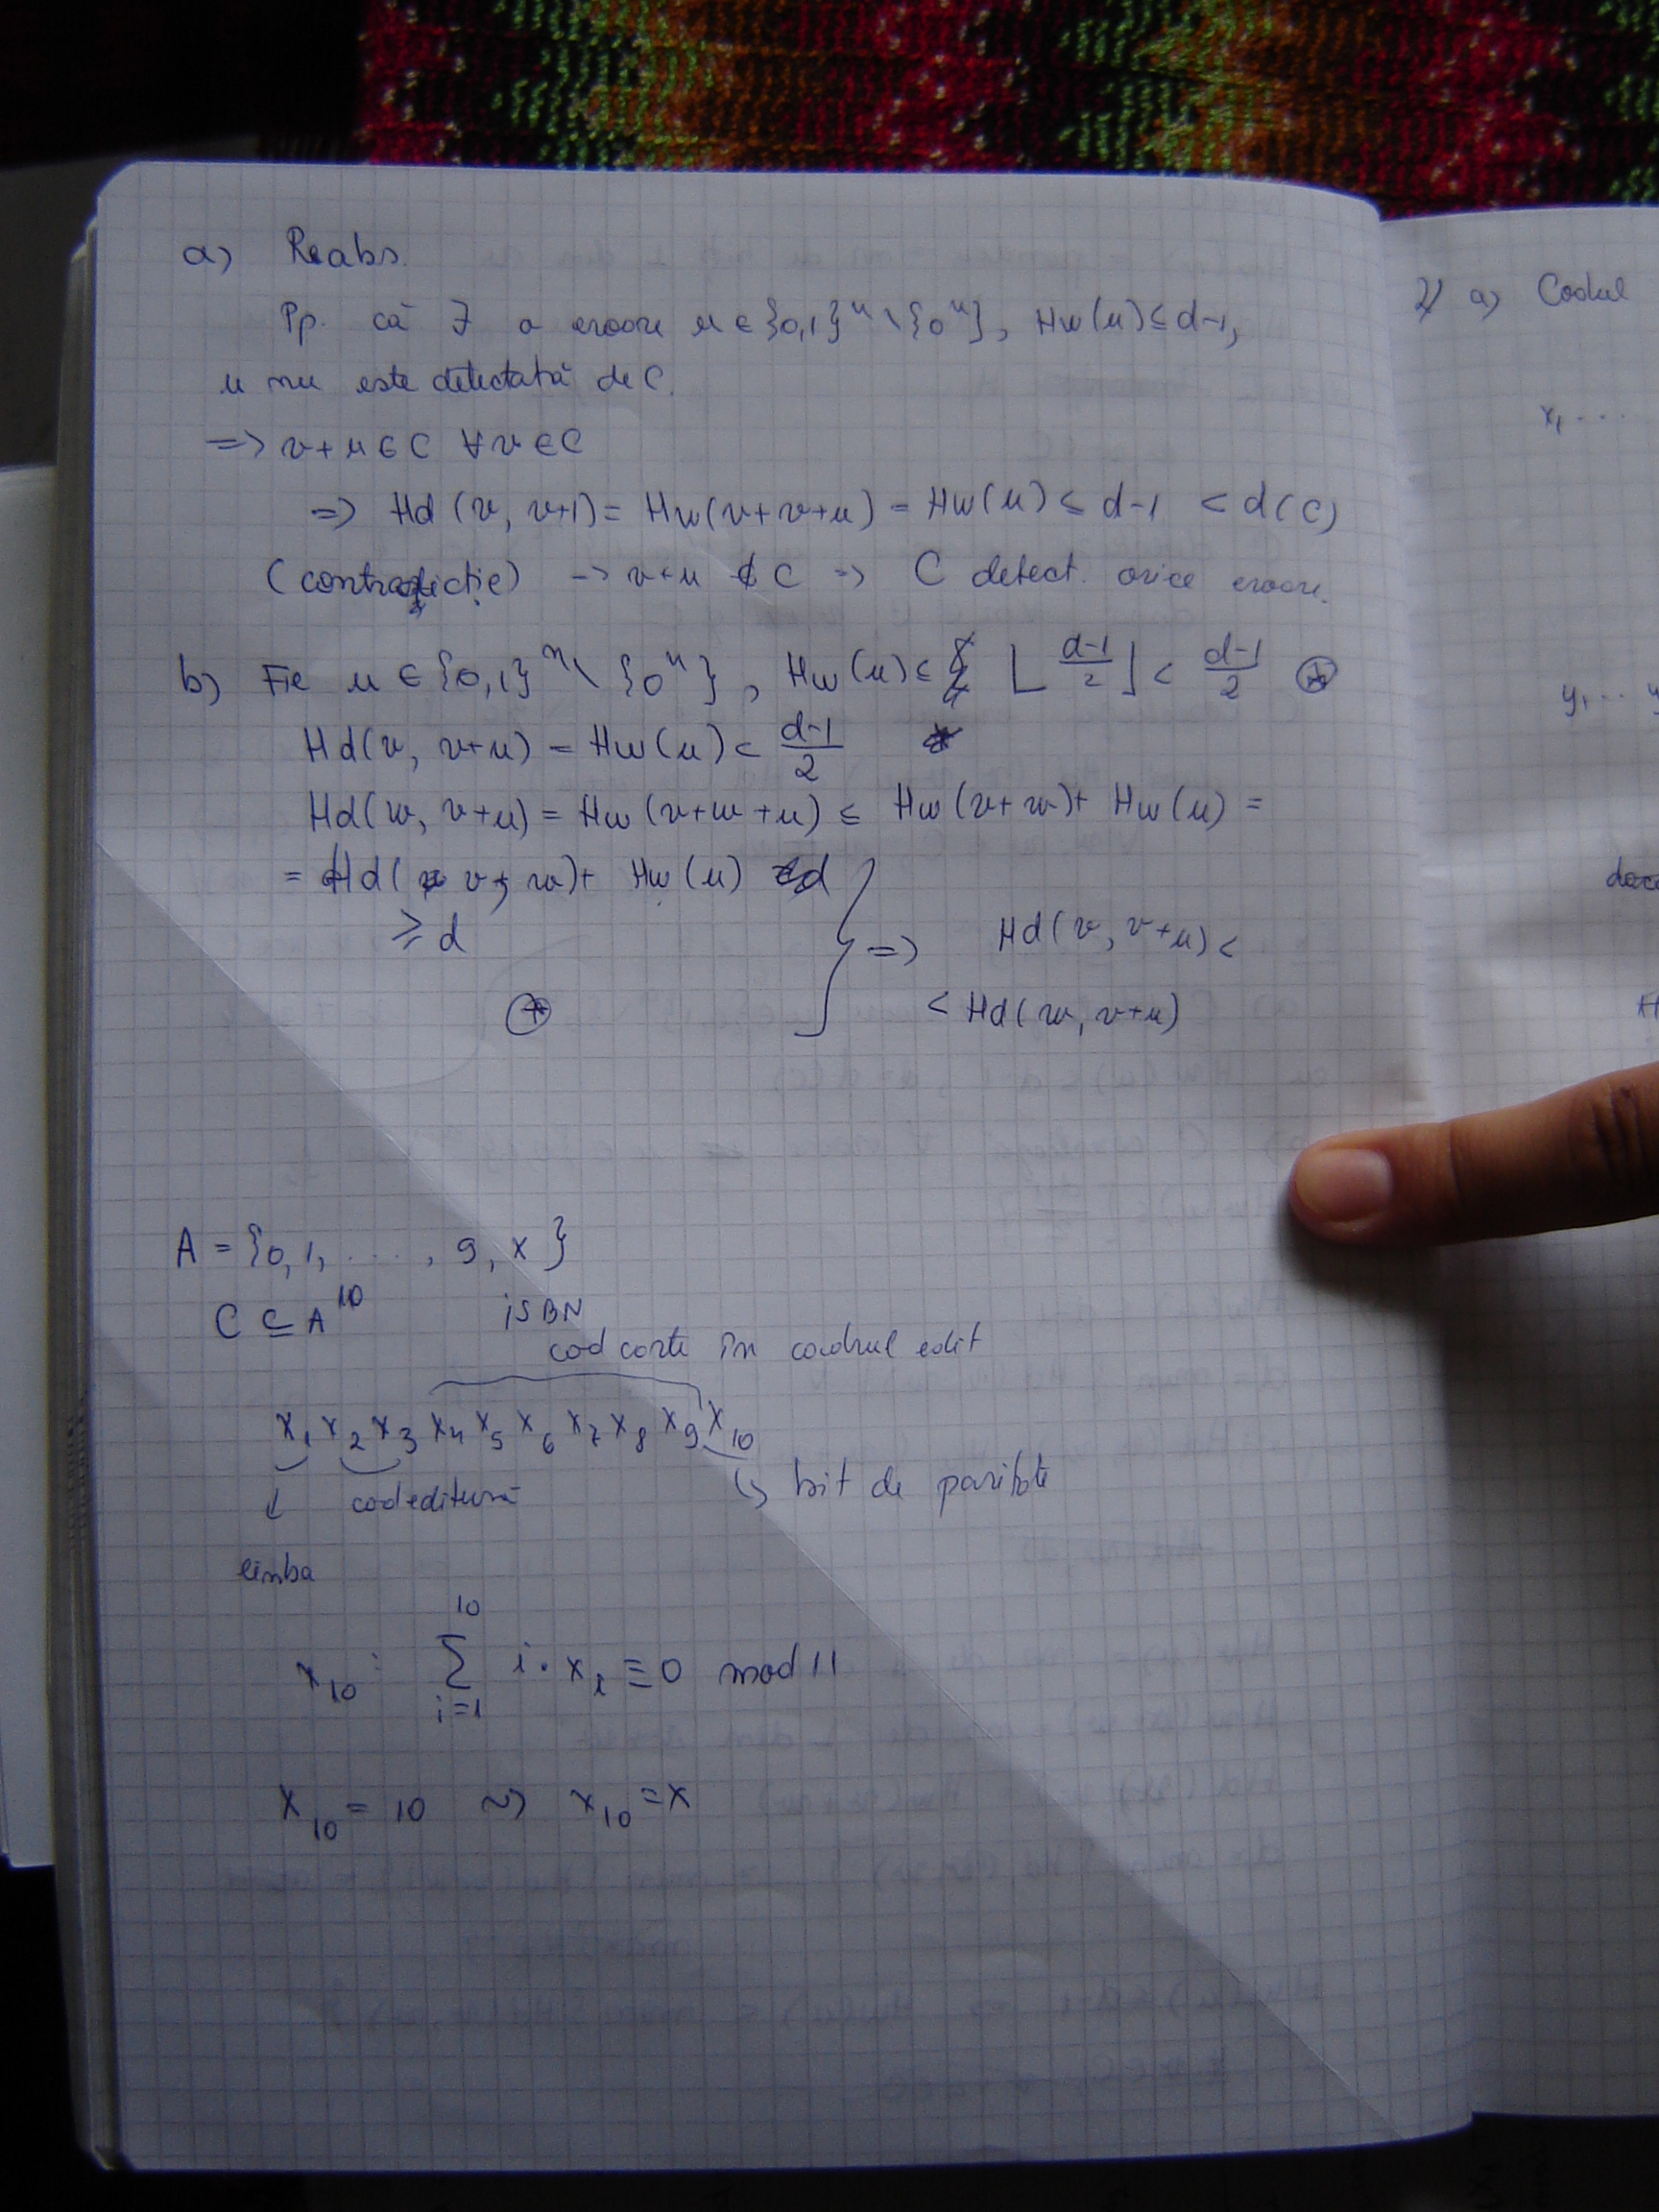 a) Reabs.
Pp. că ∃ o eroare u ∈ {0,1}^n \ {0^n}, Hw(u) ≤ d-1,
u nu este detectată de C.
=> v+u ∈ C ∀ v ∈ C
=> Hd (v, v+1) = Hw(v+v+u) = Hw(u) ≤ d-1 < d(C)
(contradicție) -> v+u ∉ C => C detect. orice eroare.
b) Fie u ∈ {0,1}^n \ {0^n}, Hw(u) ≤ ⌊(d-1)/2⌋ < (d-1)/2 (*)
Hd(v, v+u) = Hw(u) < (d-1)/2
Hd(w, v+u) = Hw(v+w+u) ≤ Hw(v+w) + Hw(u) =
= Hd(v, w) + Hw(u)
≥ d
} => Hd(v, v+u) <
(*) < Hd(w, v+u)
A = {0, 1, ...., 9, x}
C ⊆ A^10 iSBN
cod carte în cadrul edit
x1 x2 x3 x4 x5 x6 x7 x8 x9 x10
↓ cod editură ↳ bit de paritate
limba
x10 : ∑_{i=1}^{10} i · x_i ≡ 0 mod 11
x10 = 10 ~> x10 = x
2) a) Codul
x1 ...
y1 ... y